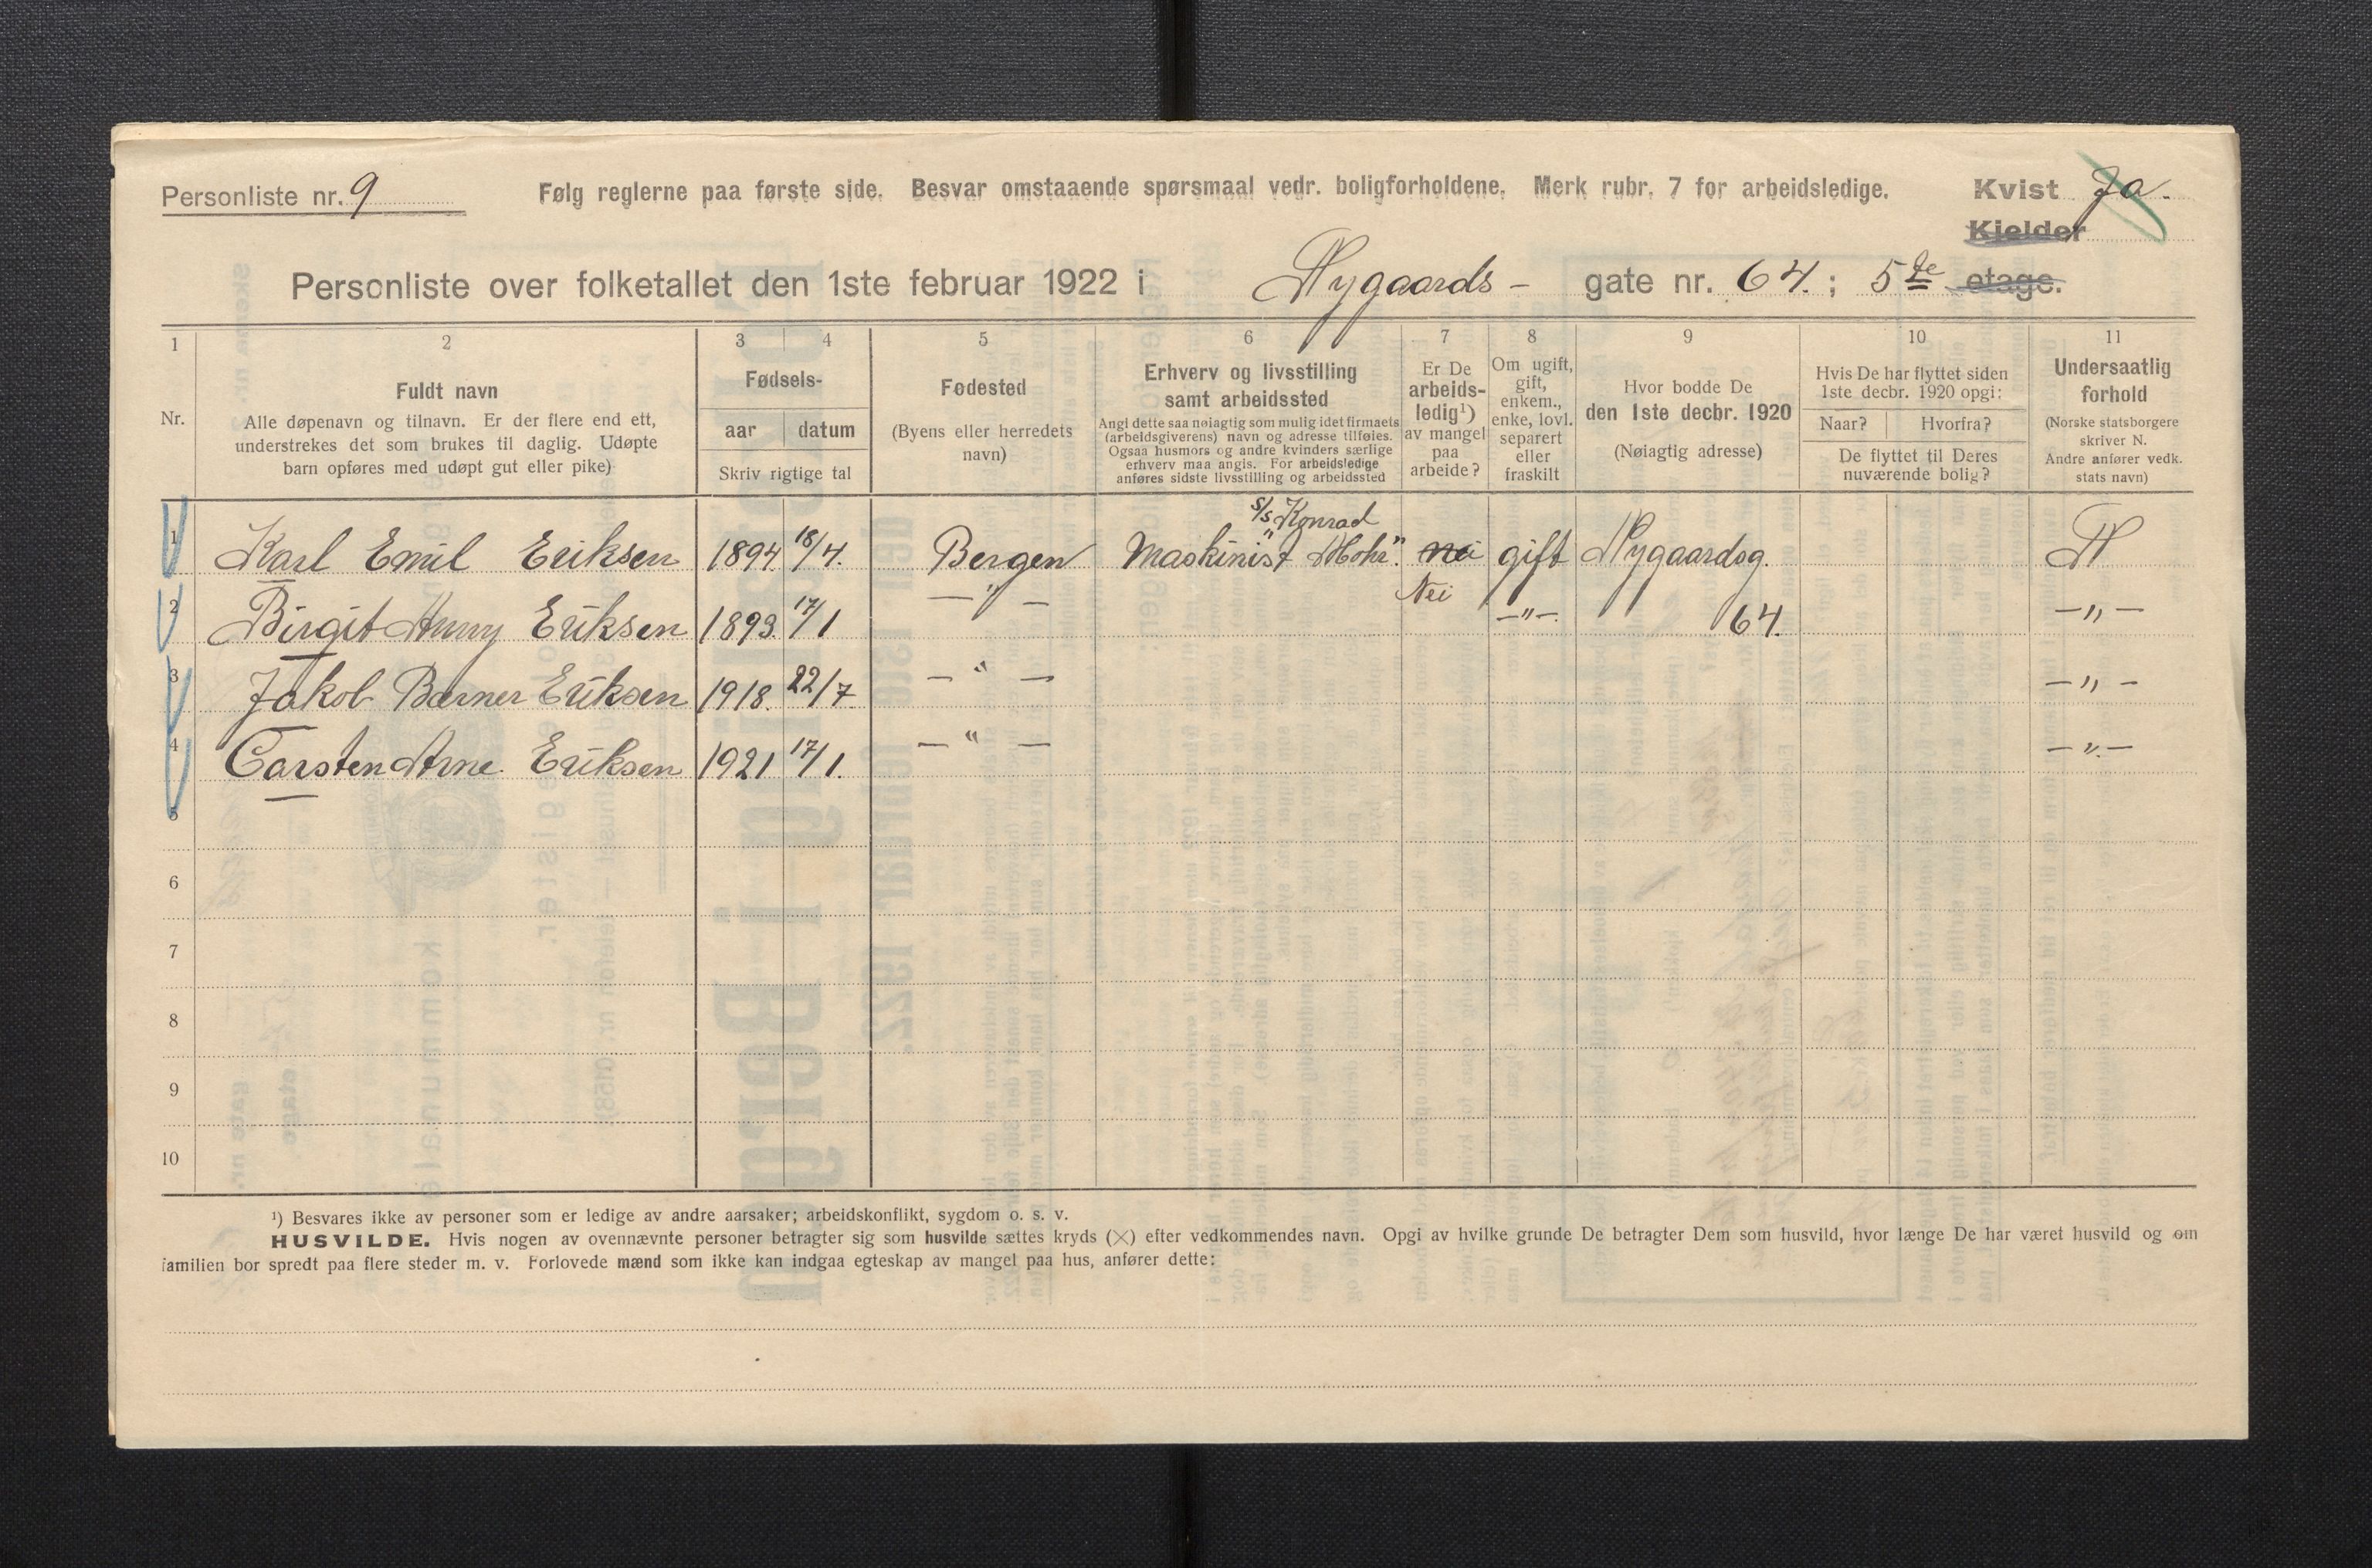 Personliste nr. 9 Følg reglerne paa første side. Besvar omstaaende spørsmaal vedr. boligforholdene. Merk rubr. 7 for arbeidsledige. Kvist Ja.
Kjelder
Personliste over folketallet den 1ste februar 1922 i Nygaards- gate nr. 64.; 5te etage.
1 2 3 4 5 6 7 8 9 10 11
Nr.
Fuldt navn
Alle døpenavn og tilnavn. Er der flere end ett,
understrekes det som brukes til daglig. Udøpte
barn opføres med udøpt gut eller pike)
Fødsels-
aar datum
Skriv rigtige tal
Fødested
(Byens eller herredets
navn)
Erhverv og livsstilling
samt arbeidssted
Angi dette saa nøiagtig som mulig idet firmaets
(arbeidsgiverens) navn og adresse tilføies.
Ogsaa husmors og andre kvinders særlige
erhverv maa angis. For arbeidsledige
anføres sidste livsstilling og arbeidssted
Er De
arbeids-
ledig¹)
av mangel
paa
arbeide?
Om ugift,
gift,
enkem.,
enke, lovl.
separert
eller
fraskilt
Hvor bodde De
den 1ste decbr. 1920
(Nøiagtig adresse)
Hvis De har flyttet siden
1ste decbr. 1920 opgi:
Naar? Hvorfra?
De flyttet til Deres
nuværende bolig?
Undersaatlig
forhold
(Norske statsborgere
skriver N.
Andre anfører vedk.
stats navn)
s/s Konrad
1 Karl Emil Eriksen 1894 18/4. Bergen Maskinist "Mohr". nei gift Nygaardsg. N
Nei
2 Birgit Anny Eriksen 1893. 17/1 —"— —"—. 64. —"—
3 Jakob Berner Eriksen 1918. 22/7 —"— —"—
4 Carsten Arne Eriksen 1921 17/1. —"— —"—
5
6
7
8
9
10
¹) Besvares ikke av personer som er ledige av andre aarsaker; arbeidskonflikt, sygdom o. s. v.
HUSVILDE. Hvis nogen av ovennævnte personer betragter sig som husvilde sættes kryds (×) efter vedkommendes navn. Opgi av hvilke grunde De betragter Dem som husvild, hvor længe De har været husvild og om
familien bor spredt paa flere steder m. v. Forlovede mænd som ikke kan indgaa egteskap av mangel paa hus, anfører dette: